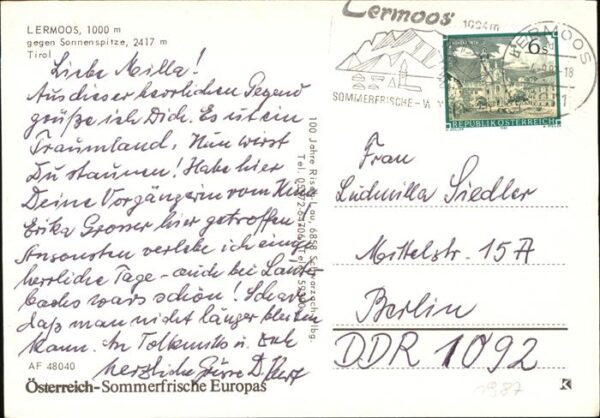 LERMOOS, 1000 m
gegen Sonnenspitze, 2417 m
Tirol
Liebe Milla!
Aus dieser herrlichen Gegend
grüße ich Dich. Es ist ein
Traumland, Nun wirst
Du staunen! Habe hier
Deine Vorgängerin vom
Erika Grosser hier getroffen
Ansonsten verlebe ich einige
herrliche Tage - auch bei Lauter
bachs war's schön! Schade
daß man nicht länger bleiben
kann. An
herzliche Grüße D.
AF 48040
Österreich-Sommerfrische Europas
100 Jahre Risch-Lau, 6858 Schwarzach Vlbg.
Lermoos
1004m
SOMMERFRISCHE -
LERMOOS
6s
REPUBLIK ÖSTERREICH
Frau
Ludmilla Siedler
Mittelstr. 15A
Berlin
DDR 1092
1987
K